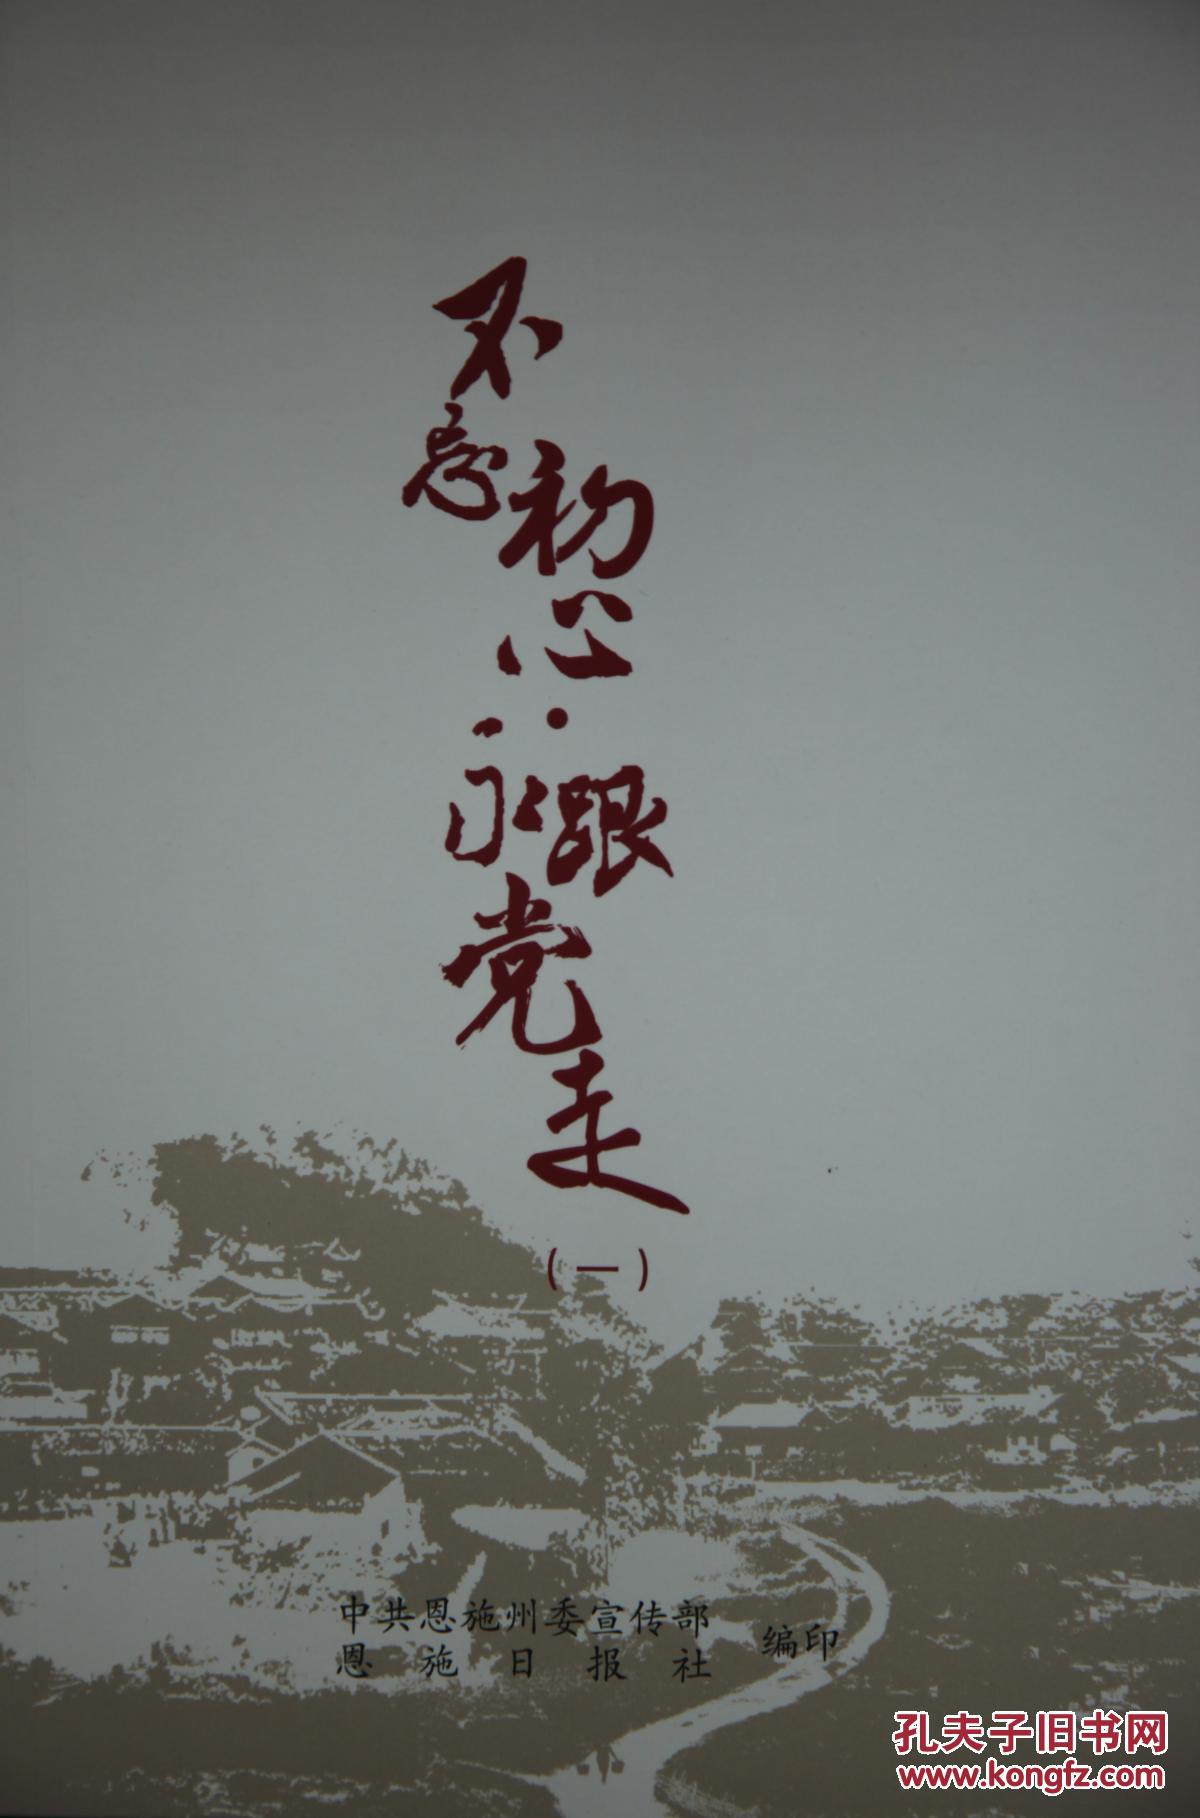 不忘初心·永跟党走
（一）
中共恩施州委宣传部
恩施日报社
编印
孔夫子旧书网
www.kongfz.com